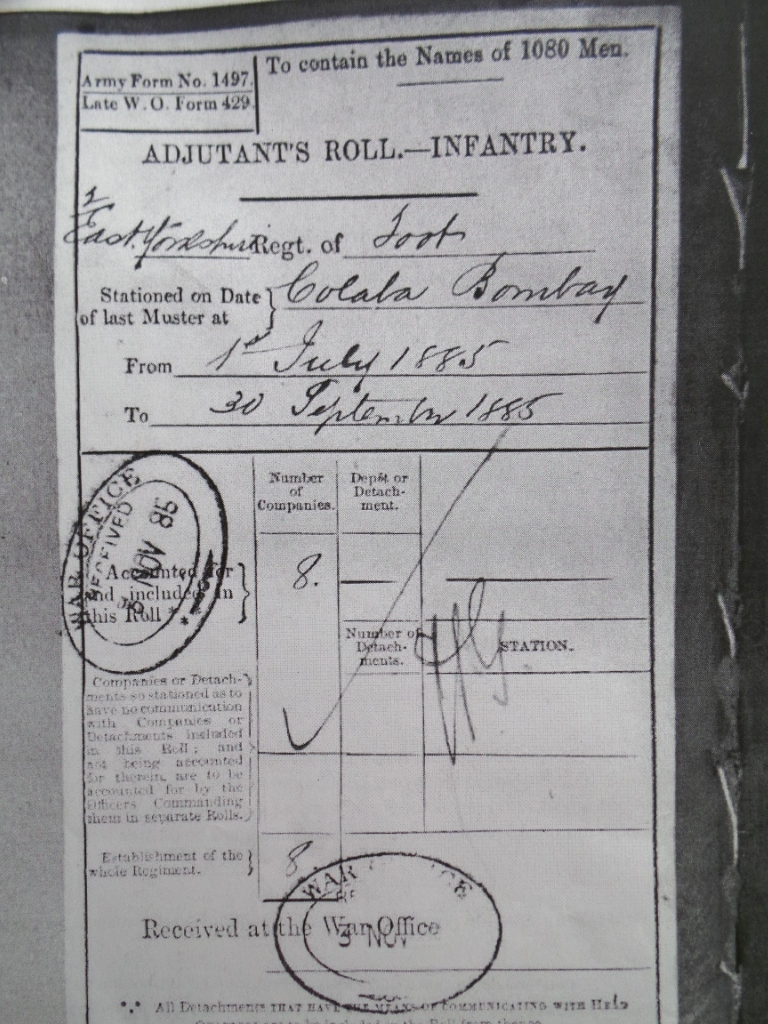 Army Form No. 1497.
Late W. O. Form 429.
To contain the Names of 1080 Men.
ADJUTANT'S ROLL.—INFANTRY.
East Yorkshire Regt. of Foot
Stationed on Date
of last Muster at } Colaba Bombay
From 1st July 1885
To 30 September 1885
Number
of
Companies.
Depôt or
Detach-
ment.
WAR OFFICE
RECEIVED
NOV 85
Accounted for
and included in
this Roll
8.
Number of
Detach-
ments.
STATION.
Companies or Detach-
ments so stationed as to
have no communication
with Companies or
Detachments included
in this Roll; and
not being accounted
for therein, are to be
accounted for by the
Officers Commanding
them in separate Rolls.
Establishment of the
whole Regiment.
8.
WAR OFFICE
3 NOV
Received at the War Office
All Detachments THAT HAVE THE MEANS OF COMMUNICATING WITH